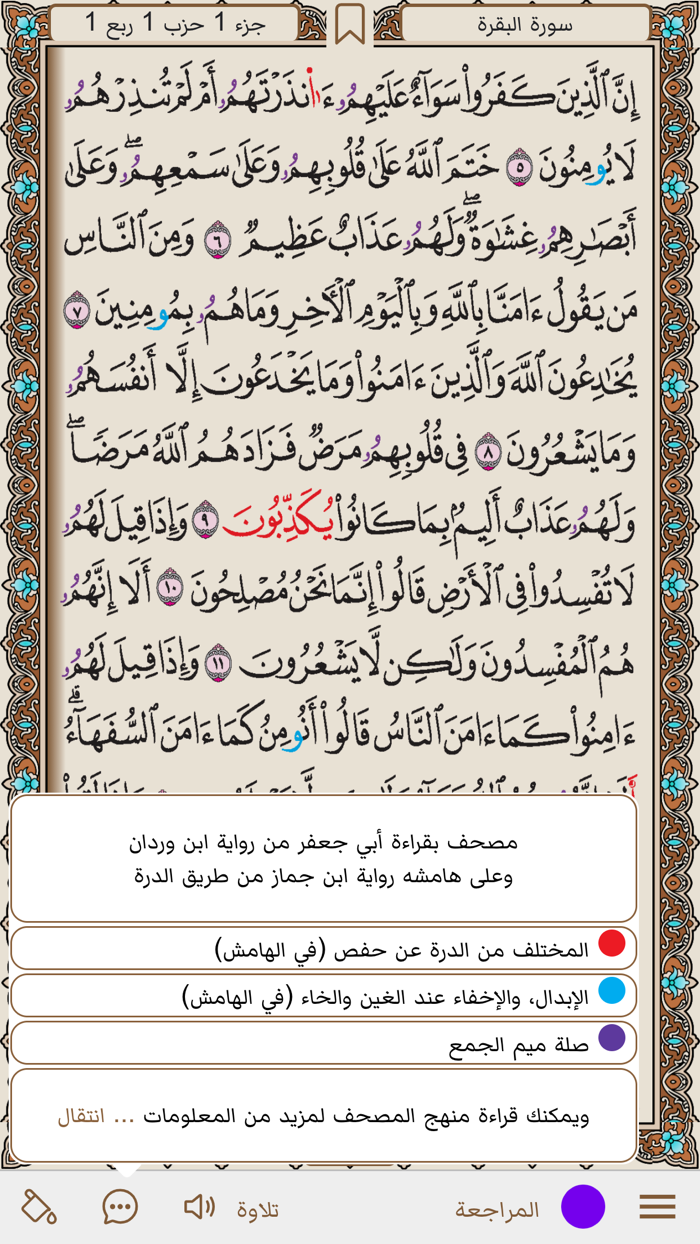 سورة البقرة
جزء 1 حزب 1 ربع 1
إِنَّ ٱلَّذِينَ كَفَرُوا۟ سَوَآءٌ عَلَيْهِمُۥ ءَا۬نذَرْتَهُمُۥ أَمْ لَمْ تُنذِرْهُمُۥ
لَا يُومِنُونَ ٥ خَتَمَ ٱللَّهُ عَلَىٰ قُلُوبِهِمُۥ وَعَلَىٰ سَمْعِهِمُۥۖ وَعَلَىٰ
أَبْصَٰرِهِمُۥ غِشَٰوَةٌۖ وَلَهُمُۥ عَذَابٌ عَظِيمٌ ٦ وَمِنَ ٱلنَّاسِ
مَن يَقُولُ ءَامَنَّا بِٱللَّهِ وَبِٱلْيَوْمِ ٱلْأَخِرِ وَمَا هُمُۥ بِمُومِنِينَ ٧
يُخَٰدِعُونَ ٱللَّهَ وَٱلَّذِينَ ءَامَنُوا۟ وَمَا يَخْدَعُونَ إِلَّا أَنفُسَهُمُۥ
وَمَا يَشْعُرُونَ ٨ فِى قُلُوبِهِمُۥ مَرَضٌ فَزَادَهُمُ ٱللَّهُ مَرَضًاۖ
وَلَهُمُۥ عَذَابٌ أَلِيمٌۢ بِمَا كَانُوا۟ يُكَذِّبُونَ ٩ وَإِذَا قِيلَ لَهُمُۥ
لَا تُفْسِدُوا۟ فِى ٱلْأَرْضِ قَالُوا۟ إِنَّمَا نَحْنُ مُصْلِحُونَ ١٠ أَلَا إِنَّهُمُۥ
هُمُ ٱلْمُفْسِدُونَ وَلَٰكِن لَّا يَشْعُرُونَ ١١ وَإِذَا قِيلَ لَهُمُۥ
ءَامِنُوا۟ كَمَا ءَامَنَ ٱلنَّاسُ قَالُوا۟ أَنُومِنُ كَمَا ءَامَنَ ٱلسُّفَهَآءُۗ
مصحف بقراءة أبي جعفر من رواية ابن وردان
وعلى هامشه رواية ابن جماز من طريق الدرة
المختلف من الدرة عن حفص (في الهامش)
الإبدال، والإخفاء عند الغين والخاء (في الهامش)
صلة ميم الجمع
ويمكنك قراءة منهج المصحف لمزيد من المعلومات ... انتقال
المراجعة
تلاوة